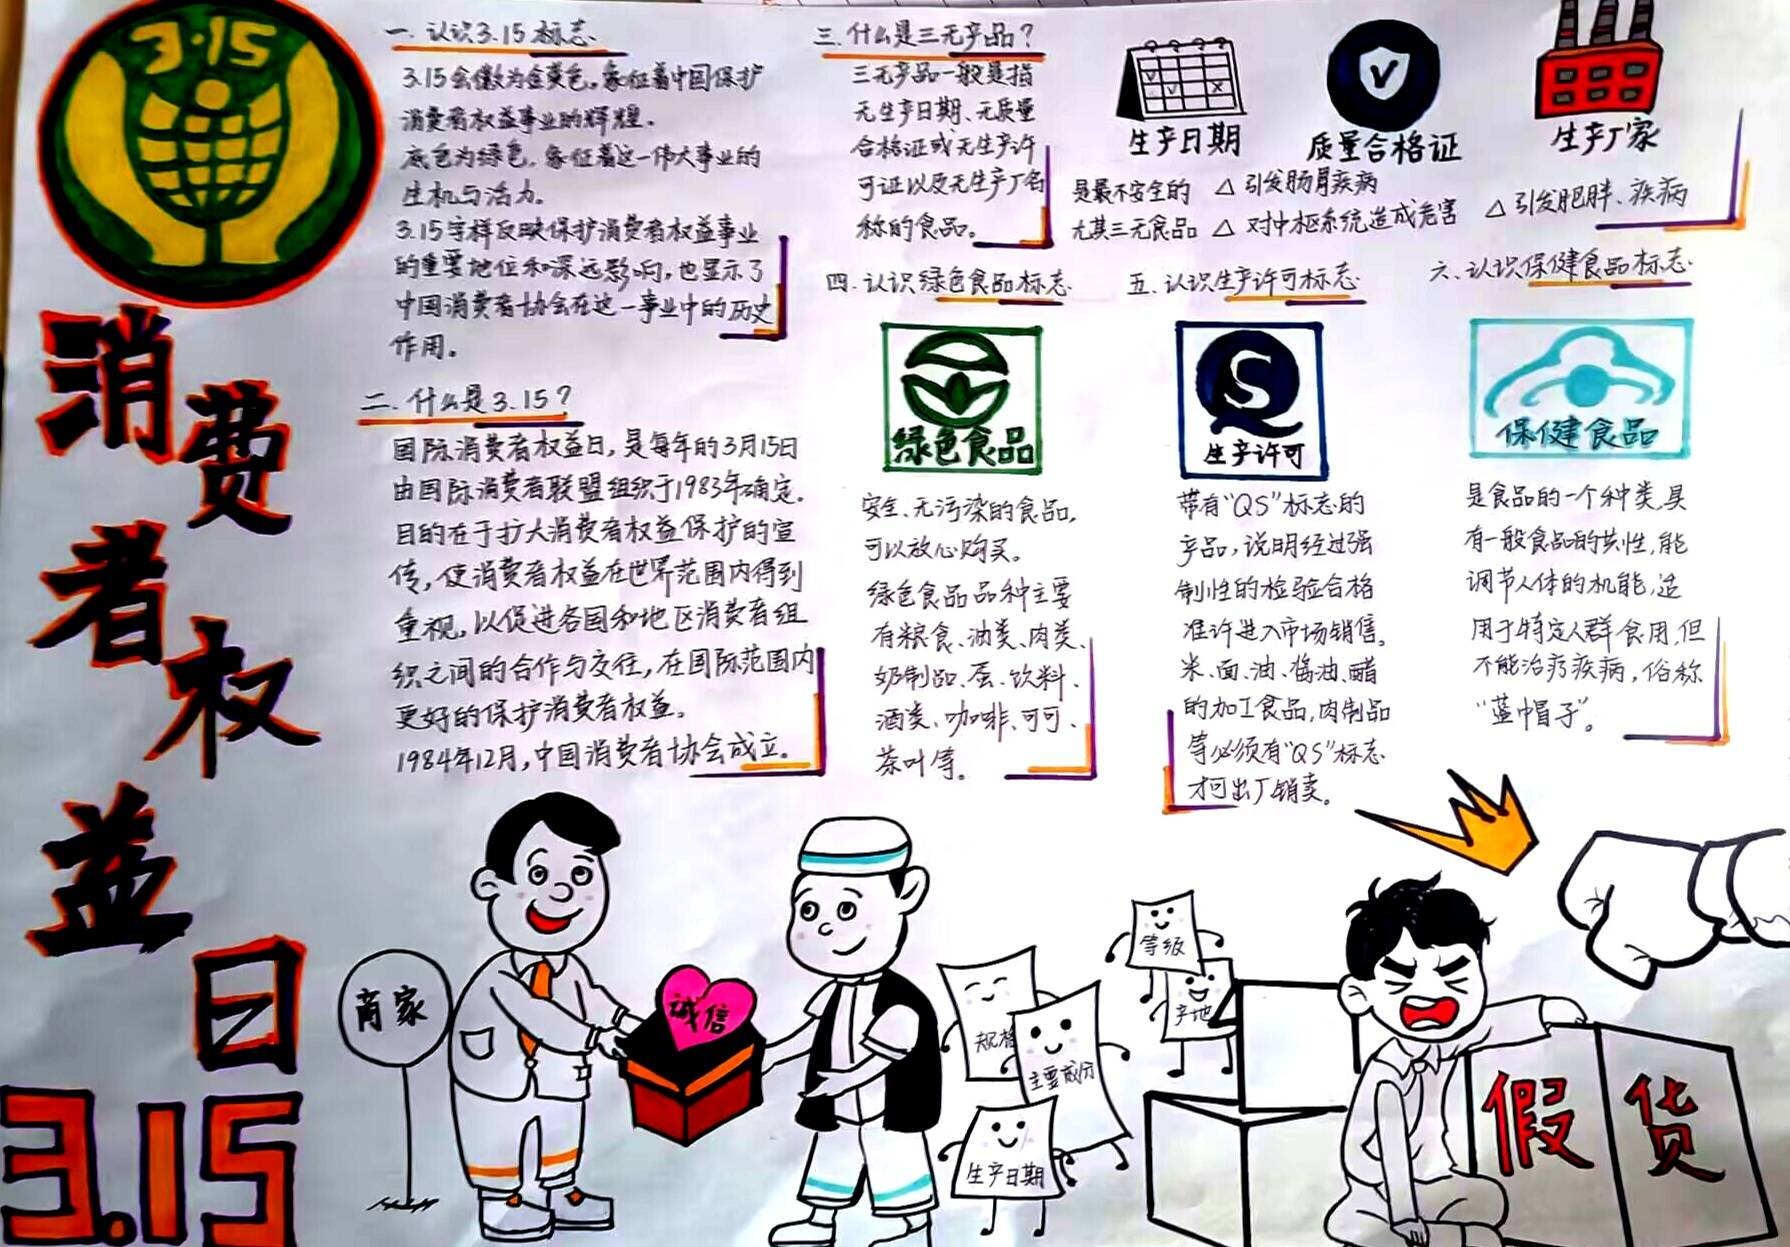 3.15
消
费
者
权
益
日
3.15
一.认识3.15标志
3.15会徽为金黄色,象征着中国保护
消费者权益事业的辉煌.
底色为绿色,象征着这一伟大事业的
生机与活力.
3.15字样反映保护消费者权益事业
的重要地位和深远影响,也显示了
中国消费者协会在这一事业中的历史
作用。
二.什么是3.15?
国际消费者权益日,是每年的3月15日
由国际消费者联盟组织于1983年确定.
目的在于扩大消费者权益保护的宣
传,使消费者权益在世界范围内得到
重视,以促进各国和地区消费者组
织之间的合作与交往,在国际范围内
更好的保护消费者权益。
1984年12月,中国消费者协会成立.
三.什么是三无产品?
三无产品一般是指
无生产日期、无质量
合格证或无生产许
可证以及无生产厂名
称的食品。
生产日期
质量合格证
生产厂家
是最不安全的
尤其三无食品
△ 引发肠胃疾病
△ 对中枢系统造成危害
△ 引发肥胖、疾病
四.认识绿色食品标志
绿色食品
安全、无污染的食品,
可以放心购买。
绿色食品品种主要
有粮食、油类、肉类、
奶制品、蛋、饮料、
酒类、咖啡、可可、
茶叶等。
五.认识生产许可标志
QS
生产许可
带有"QS"标志的
产品,说明经过强
制性的检验合格
准许进入市场销售。
米、面、油、酱油、醋
的加工食品,肉制品
等必须有"QS"标志
才可出厂销卖。
六.认识保健食品标志
保健食品
是食品的一个种类,具
有一般食品的共性,能
调节人体的机能,适
用于特定人群食用,但
不能治疗疾病,俗称
"蓝帽子"。
商家
诚信
规格
主要成分
生产日期
等级
产地
假货